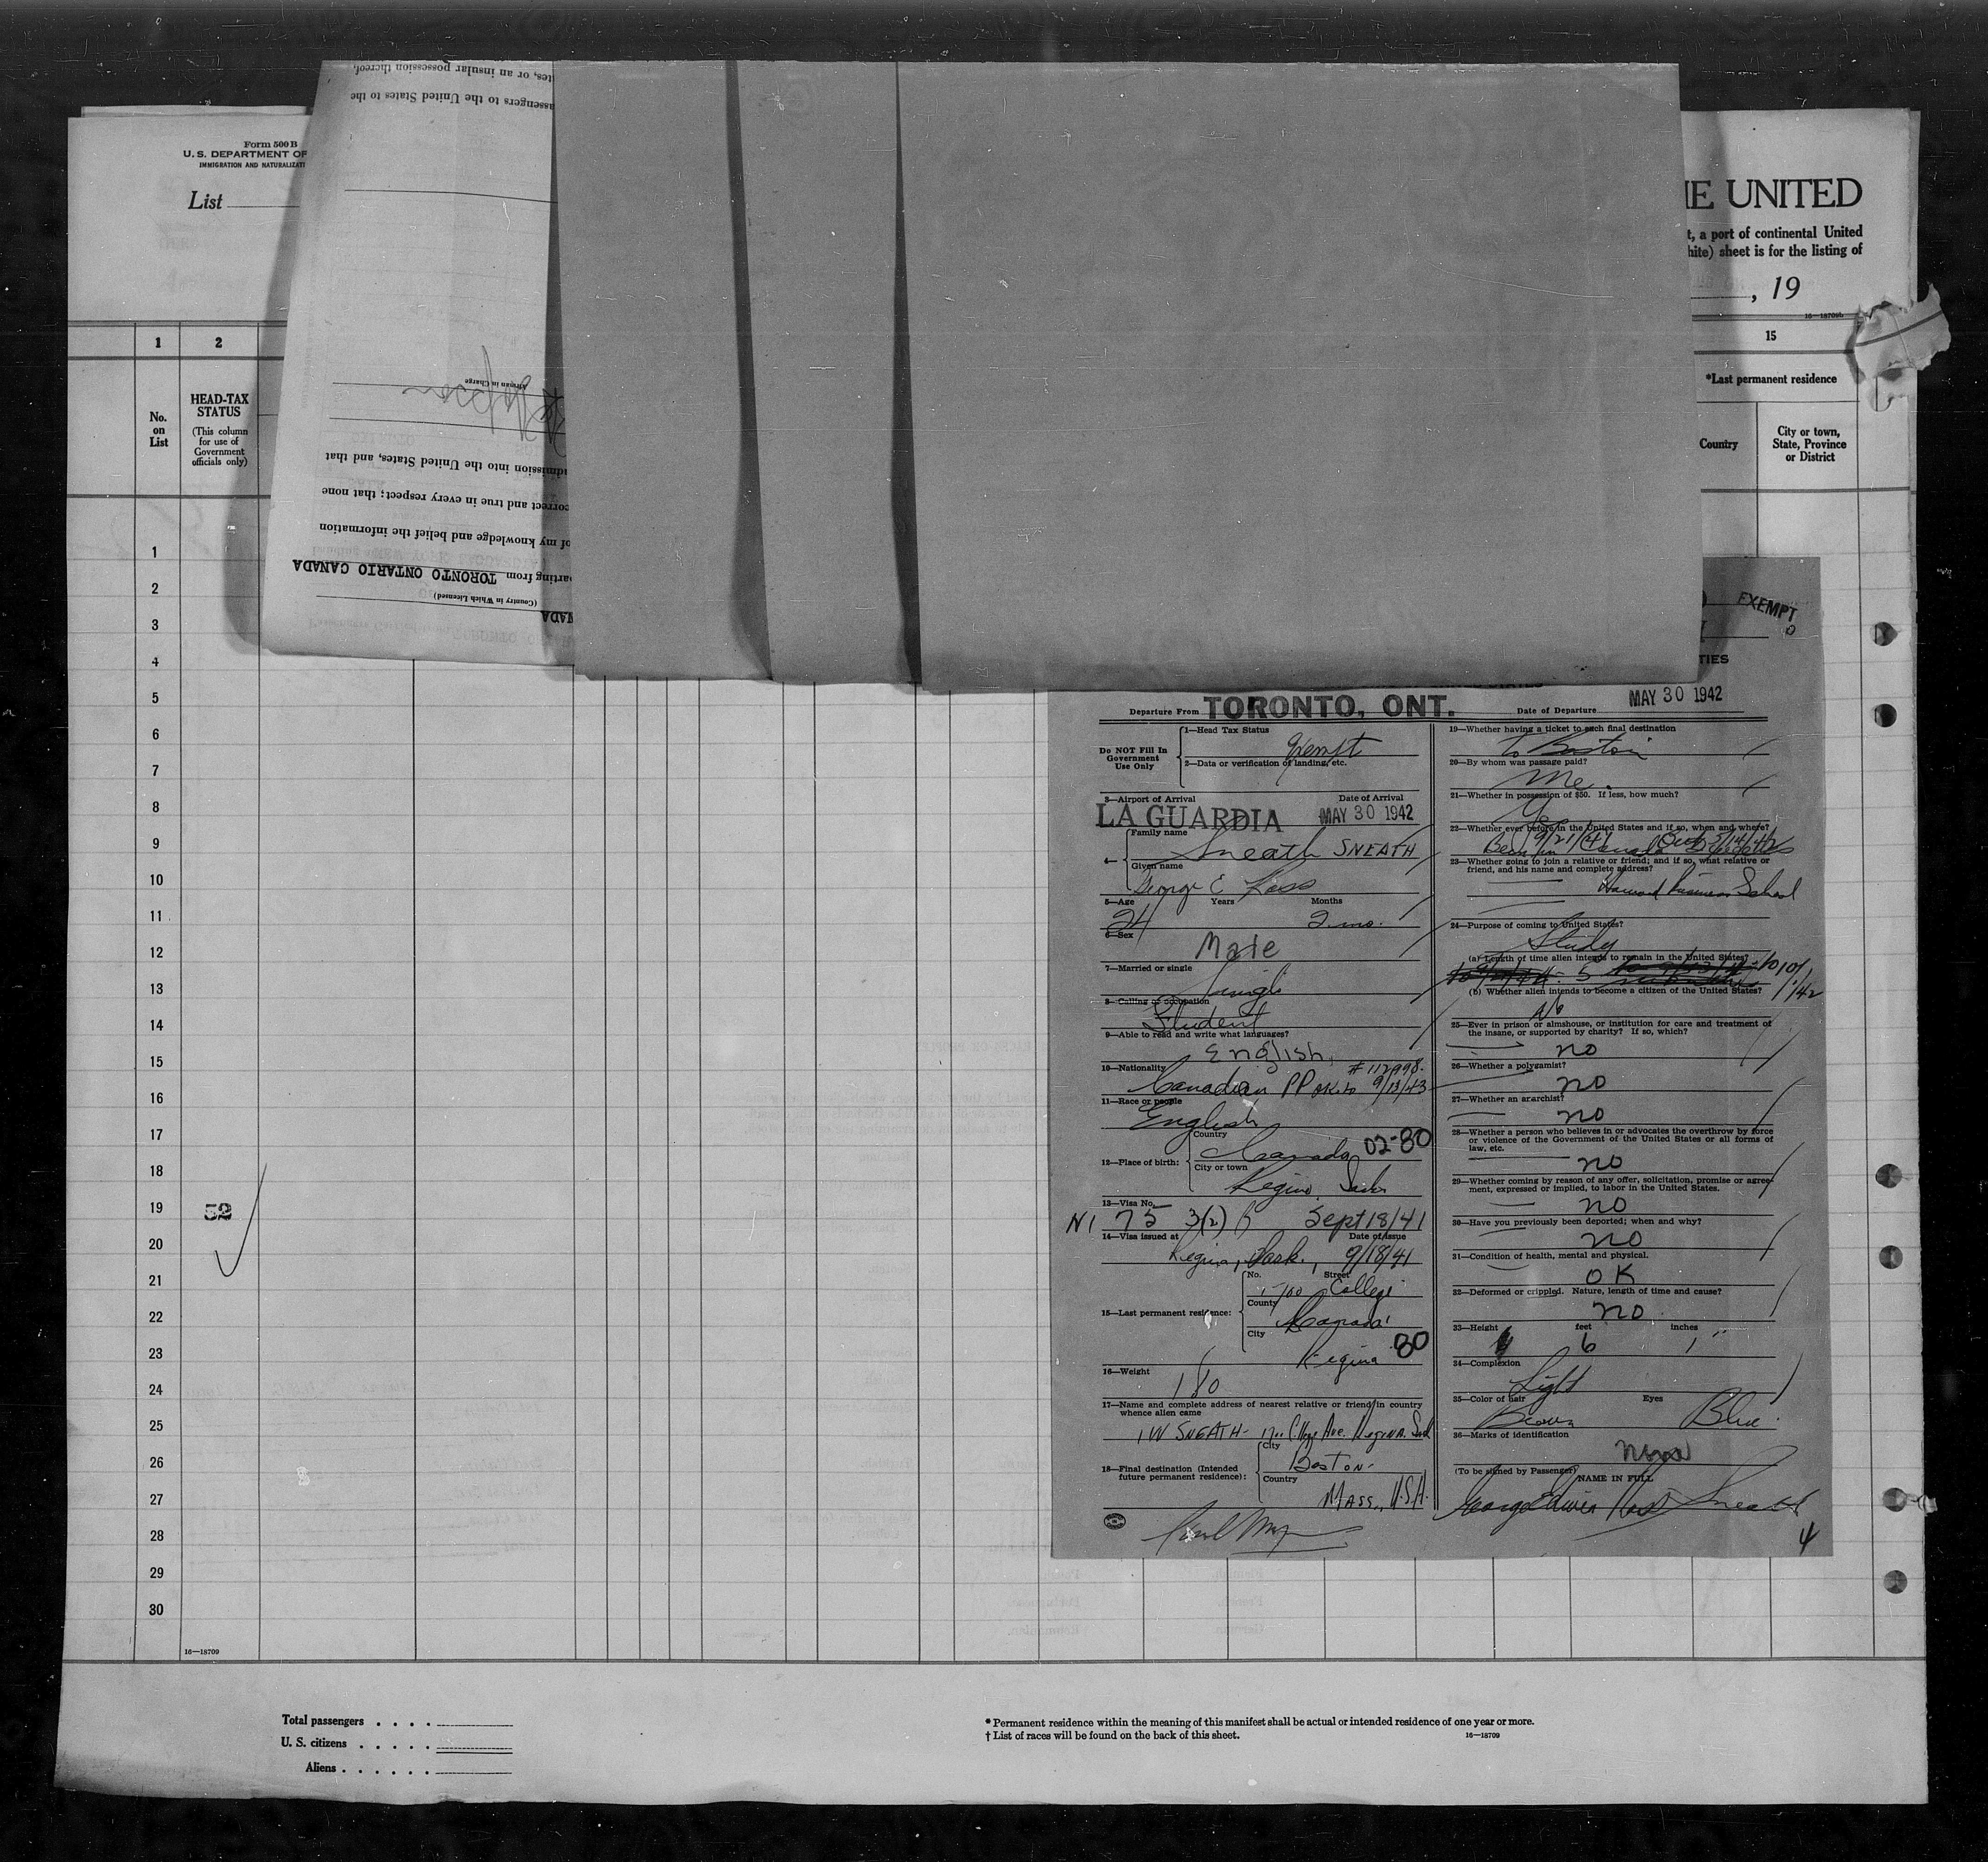 Form 500 B
U. S. DEPARTMENT OF
IMMIGRATION AND NATURALIZATI
List
tes, or an insular possession thereof,
assengers to the United States to the
Airman in Charge
dmission into the United States, and that
correct and true in every respect; that none
of my knowledge and belief the information
parting from TORONTO ONTARIO CANADA
(Country in Which Licensed)
NADA
HE UNITED
t, a port of continental United
hite) sheet is for the listing of
, 19
16—18709
1 2 15
No. on List
HEAD-TAX STATUS
(This column for use of Government officials only)
*Last permanent residence
Country
City or town, State, Province or District
1
2
3
4
5
6
7
8
9
10
11
12
13
14
15
16
17
18
19
52
20
21
22
23
24
25
26
27
28
29
30
16—18709
Total passengers . . . .
U. S. citizens . . . . .
Aliens . . . . . .
* Permanent residence within the meaning of this manifest shall be actual or intended residence of one year or more.
† List of races will be found on the back of this sheet.
16—18709
EXEMPT
TIES
Departure From TORONTO, ONT. Date of Departure MAY 30 1942
Do NOT Fill In Government Use Only
1—Head Tax Status Exempt
2—Data or verification of landing, etc.
3—Airport of Arrival Date of Arrival
LA GUARDIA MAY 30 1942
4— Family name
Sneath SNEATH
Given name
George E Ross
5—Age Years Months
24 2 mo.
6—Sex
Male
7—Married or single
Single
8—Calling or occupation
Student
9—Able to read and write what languages?
English
10—Nationality
Canadian PP OK to 9/13/43
11—Race or people
English
12—Place of birth: Country
Canada 02-80
City or town
Regina Sask
13—Visa No.
N1 75 3(2) Sept 18/41
14—Visa issued at Date of issue
Regina, Sask., 9/18/41
15—Last permanent residence: No. Street
1700 College
County
Canada
City
Regina 80
16—Weight
180
17—Name and complete address of nearest relative or friend in country whence alien came
SNEATH- 1700 College Ave. Regina. Sask
18—Final destination (Intended future permanent residence): City
Boston
Country
Mass., U.S.A.
19—Whether having a ticket to such final destination
to Boston
20—By whom was passage paid?
Me.
21—Whether in possession of $50. If less, how much?
Yes
22—Whether ever before in the United States and if so, when and where?
9/21/41
23—Whether going to join a relative or friend; and if so, what relative or friend, and his name and complete address?
Harvard Business School
24—Purpose of coming to United States?
Study
(a) Length of time alien intends to remain in the United States?
to 10/1/42
(b) Whether alien intends to become a citizen of the United States?
No
25—Ever in prison or almshouse, or institution for care and treatment of the insane, or supported by charity? If so, which?
no
26—Whether a polygamist?
no
27—Whether an anarchist?
no
28—Whether a person who believes in or advocates the overthrow by force or violence of the Government of the United States or all forms of law, etc.
no
29—Whether coming by reason of any offer, solicitation, promise or agreement, expressed or implied, to labor in the United States.
no
30—Have you previously been deported; when and why?
no
31—Condition of health, mental and physical.
OK
32—Deformed or crippled. Nature, length of time and cause?
no
33—Height feet inches
6 1"
34—Complexion
Light
35—Color of hair Eyes
Brown Blue
36—Marks of identification
None
(To be signed by Passenger) NAME IN FULL
George Edwin Ross Sneath
4